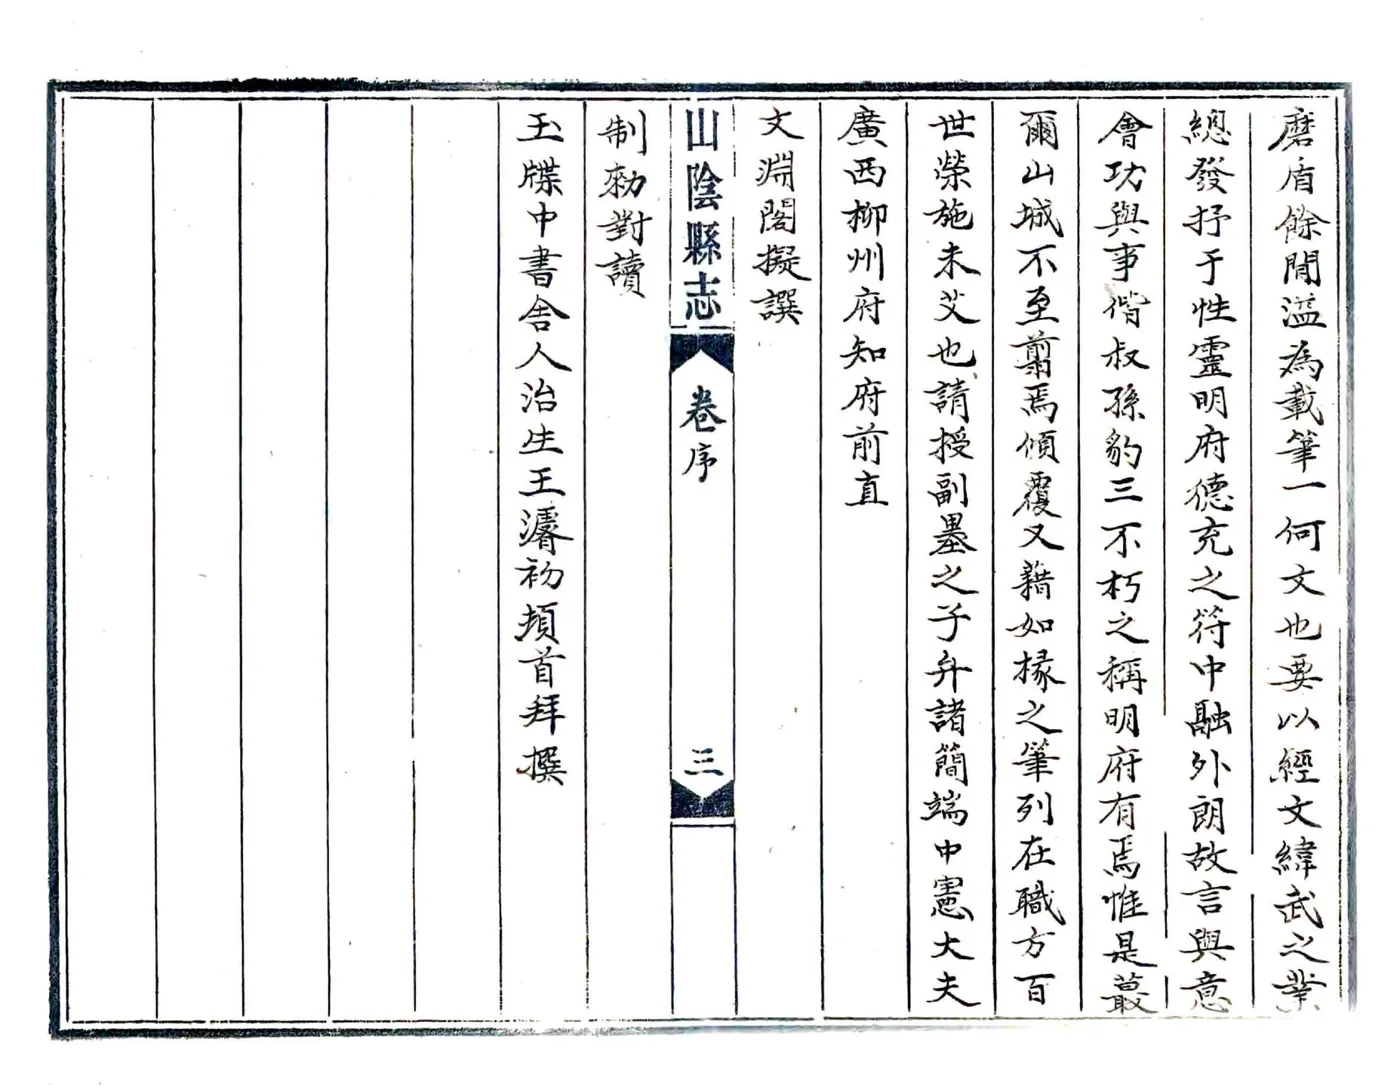 磨盾餘閒溢為載筆一何文也要以經文緯武之業
總發抒于性靈明府德充之符中融外朗故言與意
會功與事偕叔孫豹三不朽之稱明府有焉惟是蕞
爾山城不至翦焉傾覆又藉如椽之筆列在職方百
世榮施未艾也請授副墨之子弁諸簡端中憲大夫
廣西柳州府知府前直
文淵閣擬譔
山陰縣志
卷序
三
制勑對讀
玉牒中書舍人治生王濬初頓首拜撰